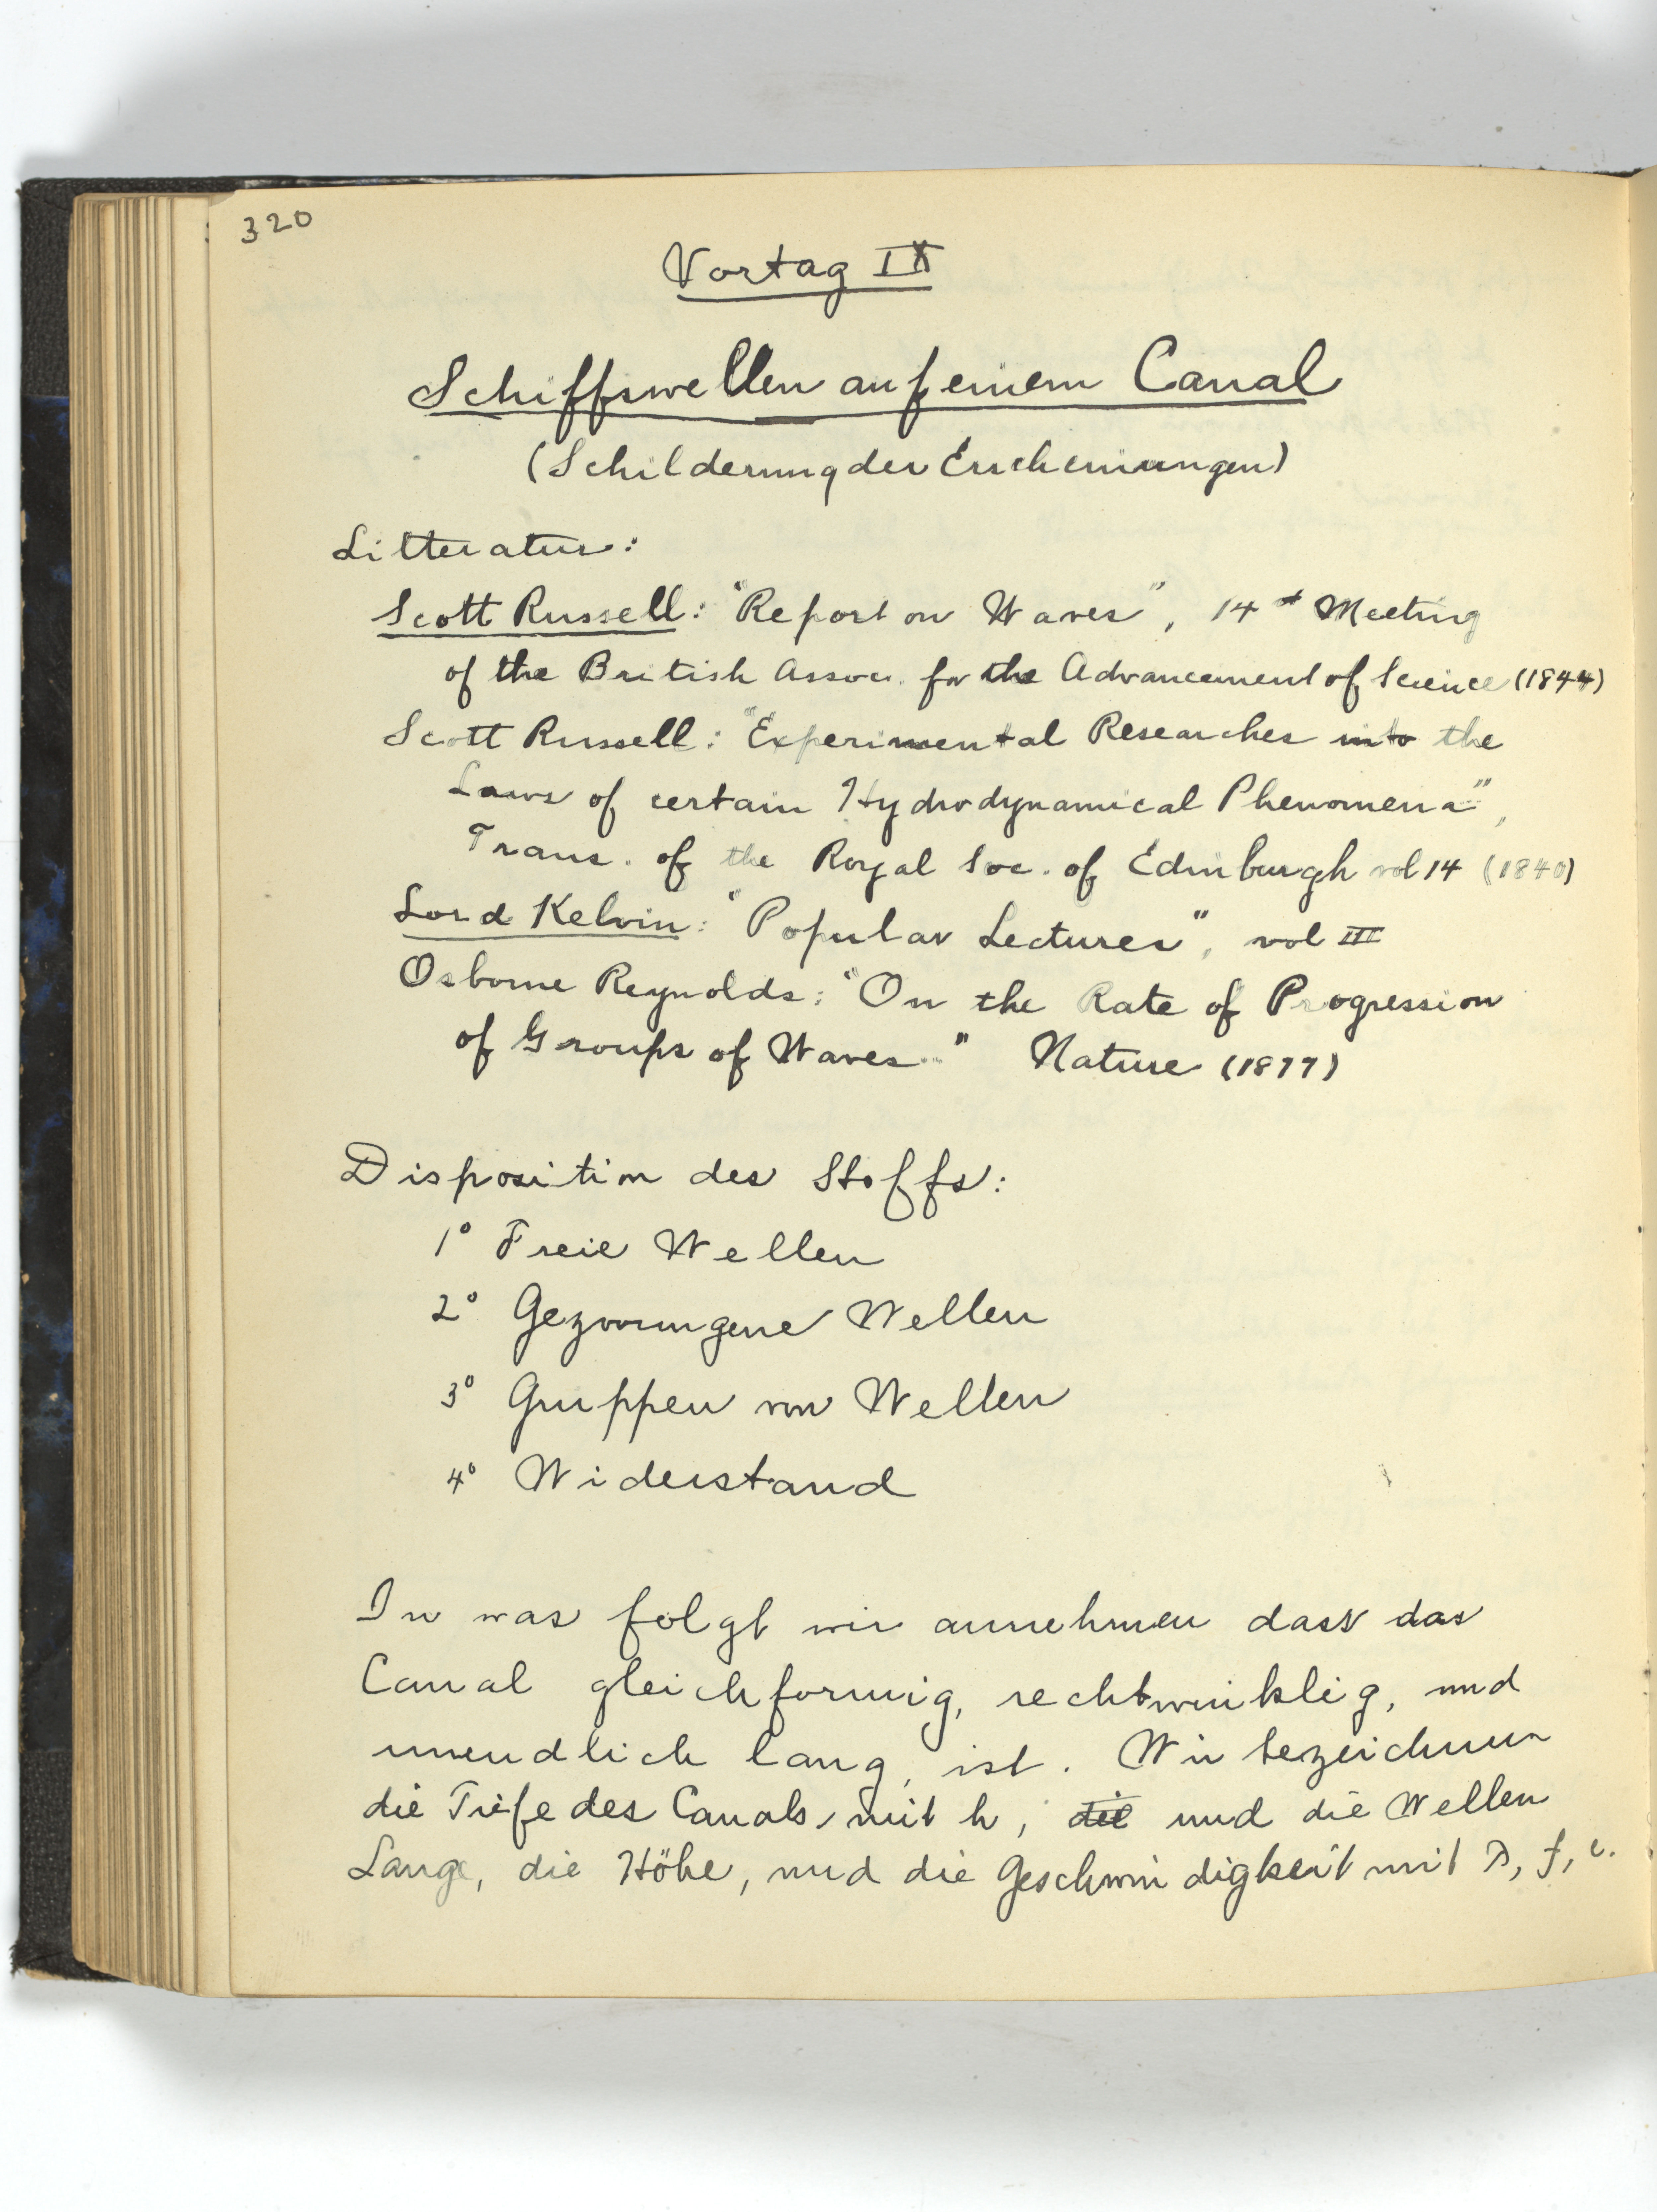 320
Vortag IX
Schiffswellen auf einem Canal
(Schilderung der Erscheinungen)
Litteratur:
Scott Russell: "Report on Waves", 14th Meeting
of the British Assoc. for the Advancement of Science (1844)
Scott Russell: "Experimental Researches into the
Laws of certain Hydrodynamical Phenomena",
Trans. of the Royal Soc. of Edinburgh vol 14 (1840)
Lord Kelvin: "Popular Lectures", vol III
Osborne Reynolds: "On the Rate of Progression
of Groups of Waves..." Nature (1877)
Disposition des Stoffs:
1° Freie Wellen
2° Gezwungene Wellen
3° Gruppen von Wellen
4° Widerstand
In was folgt wir annehmen dass das
Canal gleichformig, rechtwinklig, und
unendlich lang, ist. Wir bezeichnen
die Tiefe des Canals, mit h, die und die Wellen
Lange, die Höhe, und die Geschwindigkeit mit λ, f, c.